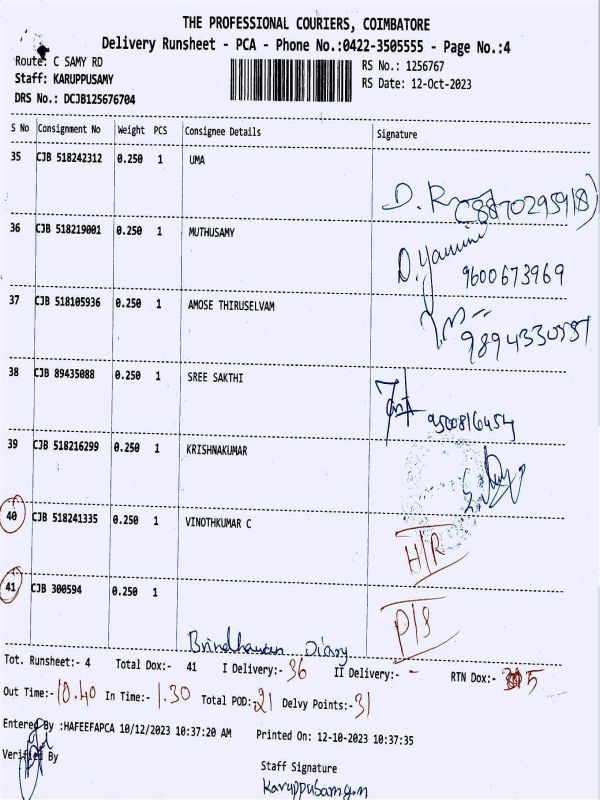 THE PROFESSIONAL COURIERS, COIMBATORE
Delivery Runsheet - PCA - Phone No.:0422-3505555 - Page No.:4
Route: C SAMY RD
RS No.: 1256767
Staff: KARUPPUSAMY
RS Date: 12-Oct-2023
DRS No.: DCJB125676704
S No Consignment No Weight PCS Consignee Details Signature
35 CJB 518242312 0.250 1 UMA
36 CJB 518219001 0.250 1 MUTHUSAMY
D. Yamini
9600673969
37 CJB 518105936 0.250 1 AMOSE THIRUSELVAM
38 CJB 89435088 0.250 1 SREE SAKTHI
39 CJB 518216299 0.250 1 KRISHNAKUMAR
40 CJB 518241335 0.250 1 VINOTHKUMAR C
H/R
41 CJB 300594 0.250 1
P/S
Brindhavan Diary
Tot. Runsheet:- 4 Total Dox:- 41 I Delivery:- 36 II Delivery:- - RTN Dox:- 5
Out Time:- 10.40 In Time:- 1.30 Total POD:- 21 Delvy Points:- 31
Entered By :HAFEEFAPCA 10/12/2023 10:37:20 AM Printed On: 12-10-2023 10:37:35
Verified By
Staff Signature
Karuppusamy.n